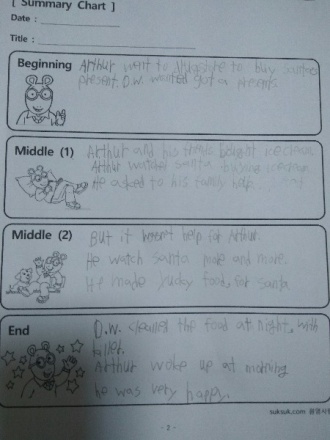 [ Summary Chart ]
Date :
Title :
Beginning
Arthur want to drugstore to buy santas
present. D.w. wanted got a presents.
Middle (1)
Arthur and his friends bought icecream
Arthur watched santa
He asked to his family help.
Middle (2)
But it wasn't help for Arthur.
He watch santa more and more.
He made yucky food, for santa.
End
D.w. cleaned the food at night, with
Arthur woke up at morning
he was very happy.
suksuk.com
- 2 -